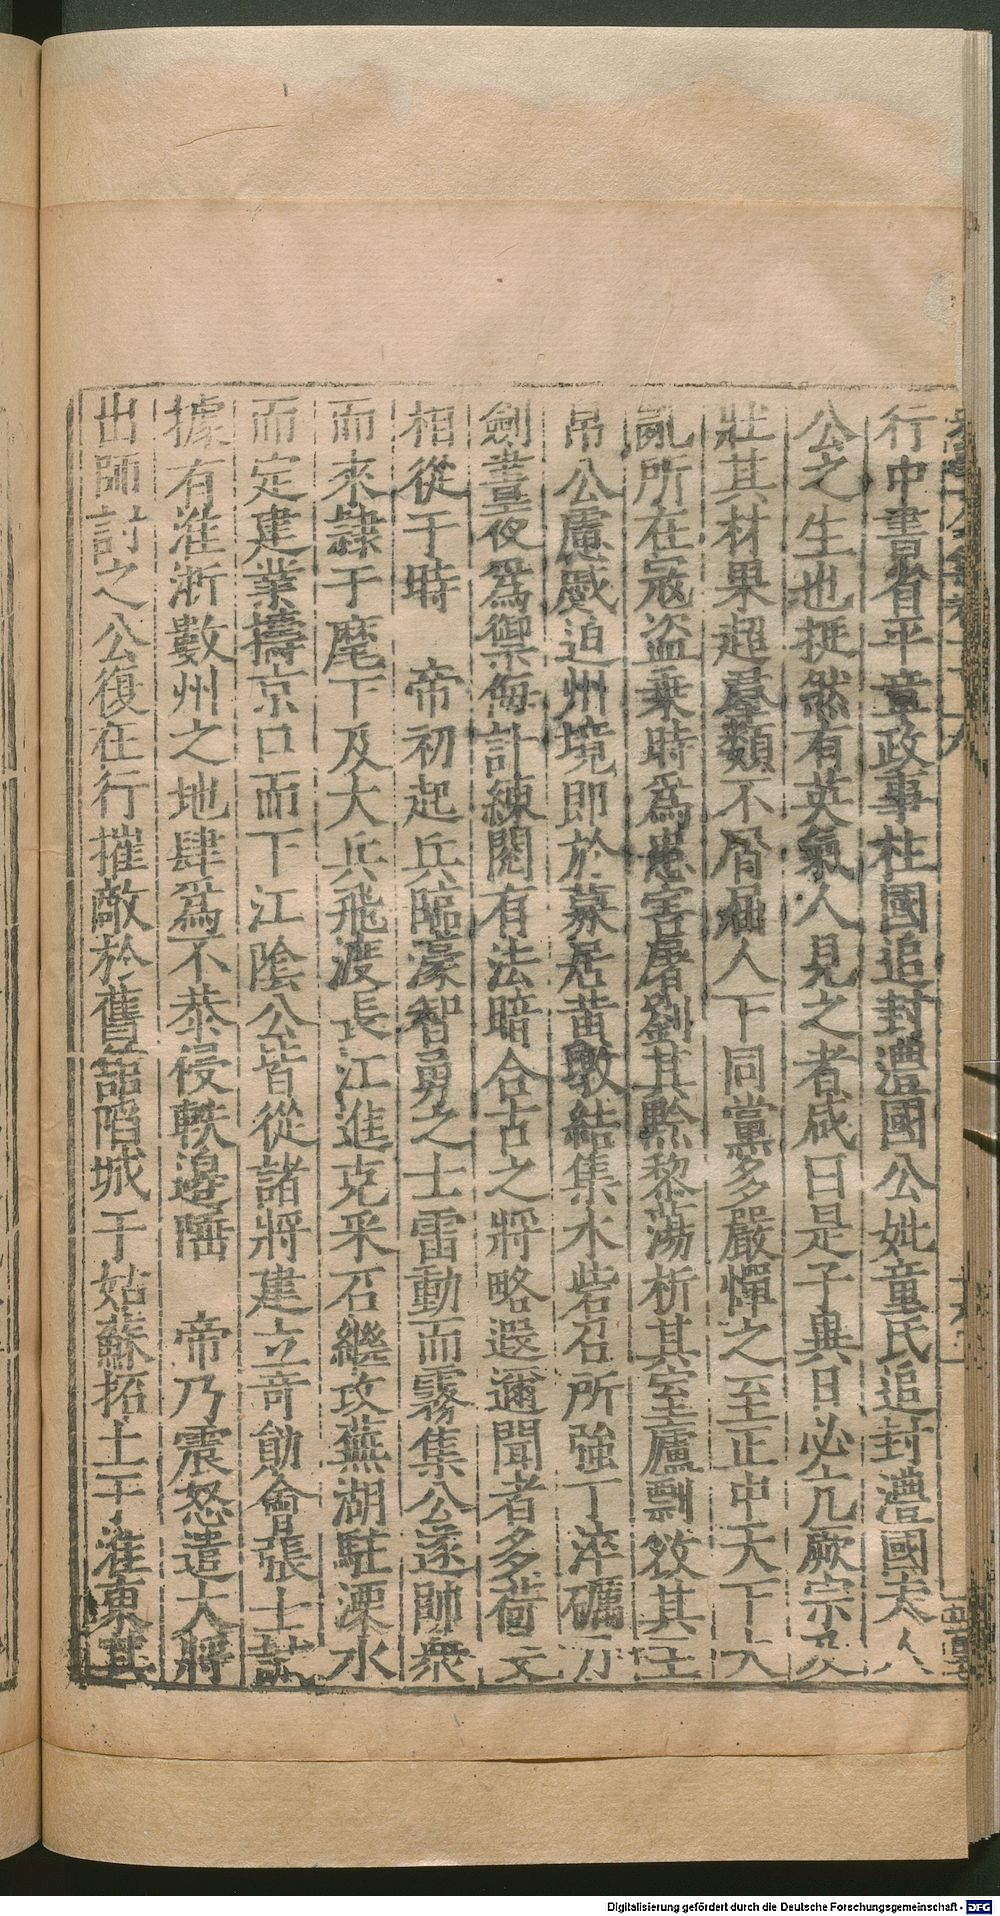 行中書省平章政事柱國追封澧國公妣童氏追封澧國夫人
公之生也挺然有英氣人見之者咸曰是子異日必亢厥宗及
壯其材果超羣類不屑屈人下同黨多嚴憚之至正中天下大
亂所在寇盜乗時爲患害屠劉其黔黎蕩析其室廬剽敚其玉
帛公慮慼迫州境即於募居黄墩結集水砦召所強丁淬礪刀
劍晝夜爲禦侮計練閱有法暗合古之將略遐邇聞者多荷戈
相從于時　帝初起兵臨濠智勇之士雷動而霧集公遂帥衆
而來隷于麾下及大兵飛渡長江進克采石繼攻蕪湖駐溧水
而定建業擣京口而下江陰公皆從諸將建立竒勛會張士誠
據有淮浙數州之地肆爲不恭侵軼邊陲　帝乃震怒遣大將
出師討之公復在行摧敵於舊館陷城于姑蘇拓土于淮東其
Digitalisierung gefördert durch die Deutsche Forschungsgemeinschaft - DFG